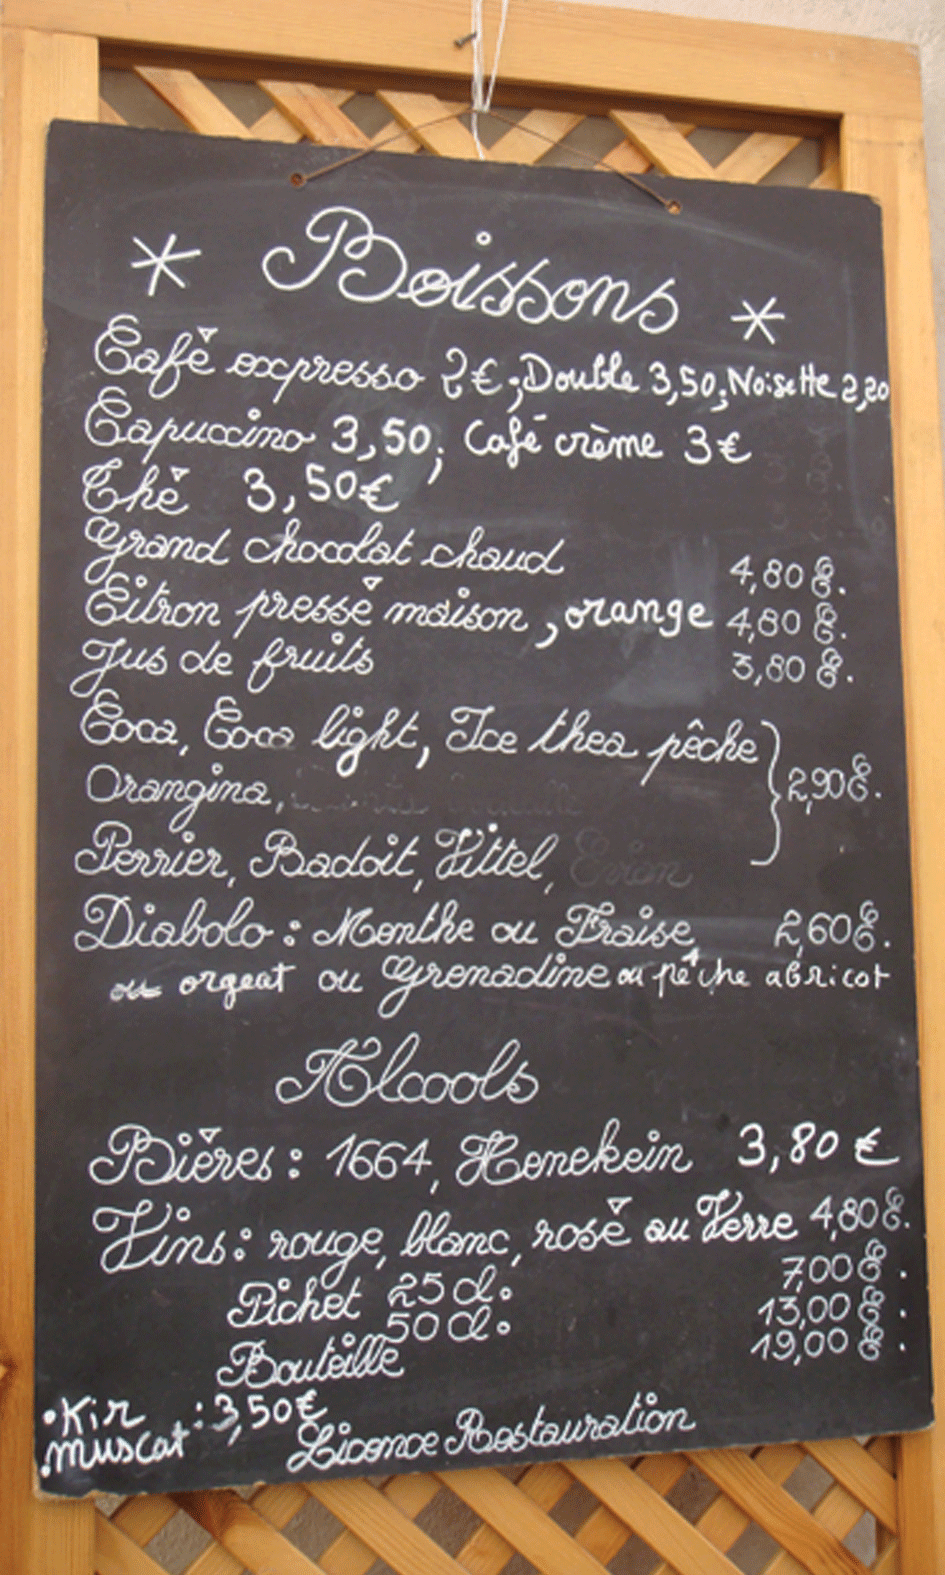 * Boissons *
Café expresso 2€; Double 3,50; Noisette 2,20
Capuccino 3,50; Café crème 3€
Thé 3,50€
Grand chocolat chaud 4,80 €.
Citron pressé maison, orange 4,80 €.
Jus de fruits 3,80 €.
Coca, Coca light, Ice thea pêche
Orangina, 2,90€.
Perrier, Badoit, Vittel, Evian
Diabolo: Menthe ou Fraise, 2,60€.
ou orgeat ou Grenadine ou pêche abricot
Alcools
Bières: 1664, Henekein 3,80 €
Vins: rouge, blanc, rosé au Verre 4,80€.
Pichet 25 cl. 7,00 €.
50 cl. 13,00 €.
Bouteille 19,00 €.
• Kir : 3,50€
• muscat
Licence Restauration